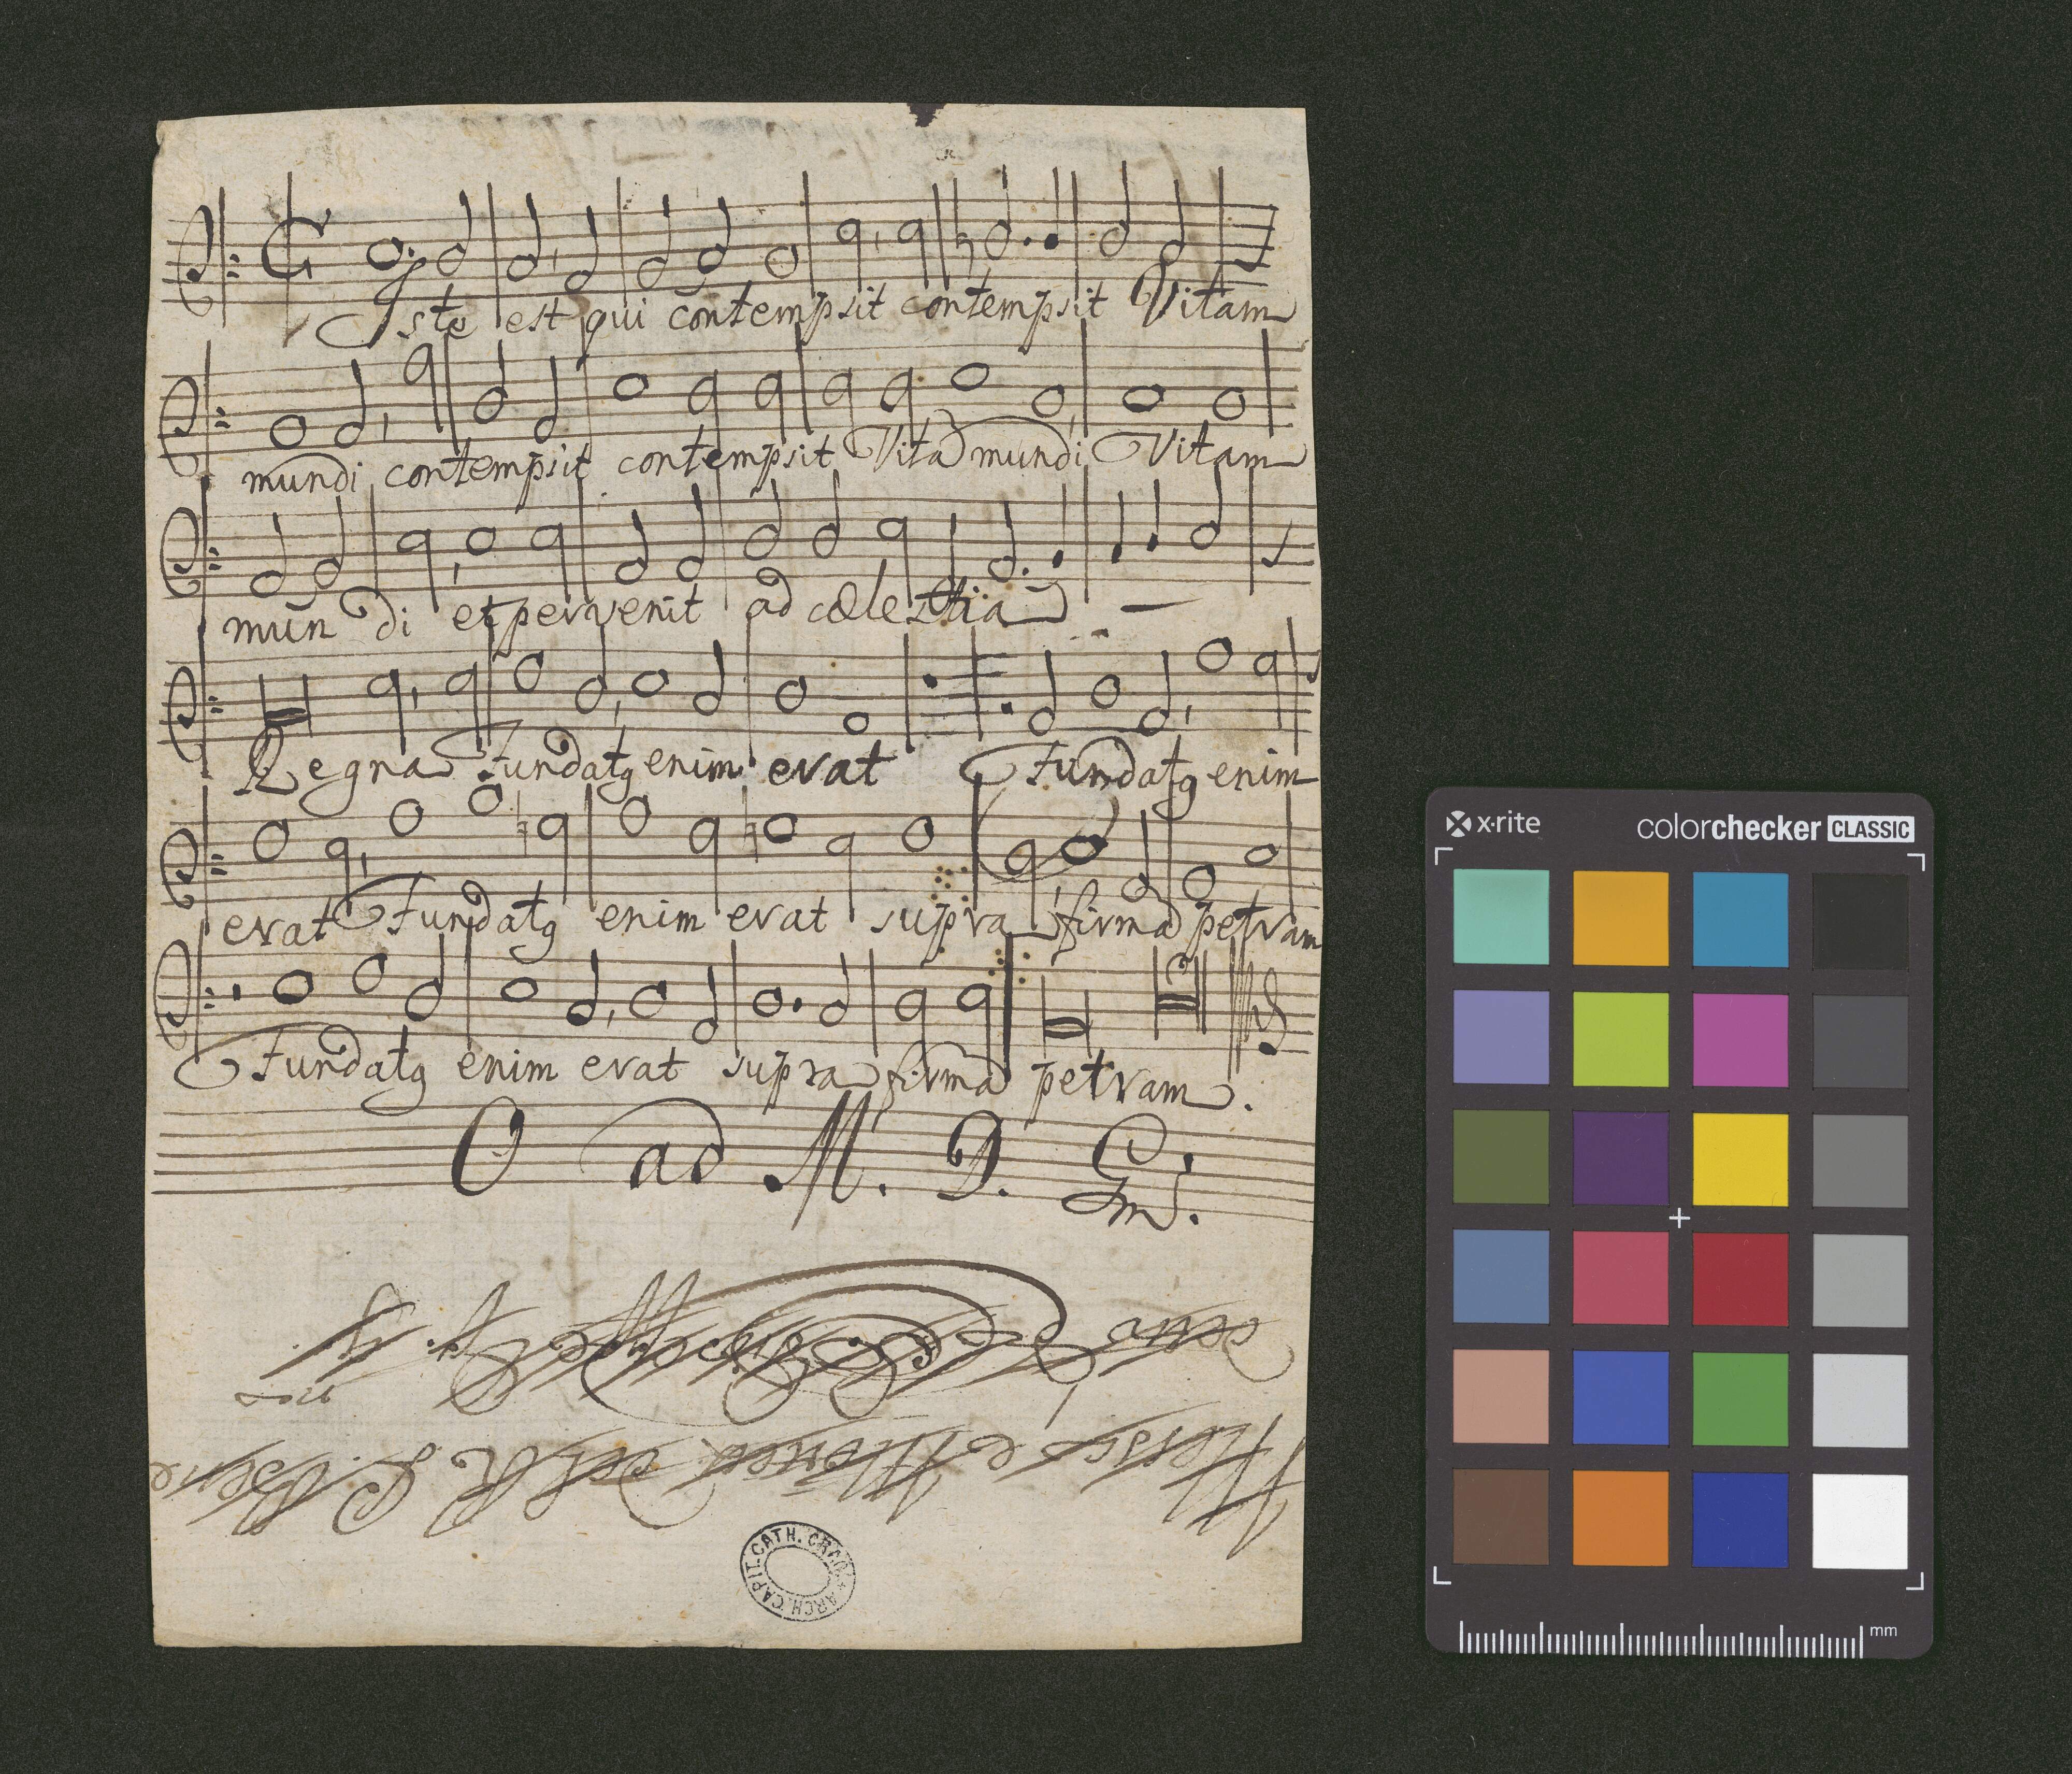 Iste est qui contempsit contempsit Vitam
mundi contempsit contempsit Vitā mundi Vitam
mūn di et pervenit ad cœlestia
Regna Fundatꝰ enim erat Fundatꝰ enim
erat Fundatꝰ enim erat supra firmā petram
Fundatꝰ enim erat supra firmā petram.
O ad M. D. Gm.
ARCH. CAPIT. CATH. CRAC.
x·rite colorchecker CLASSIC
mm